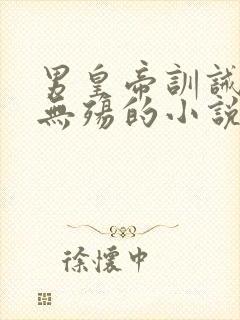 男皇帝訓誡
無殤的小說
徐懷中